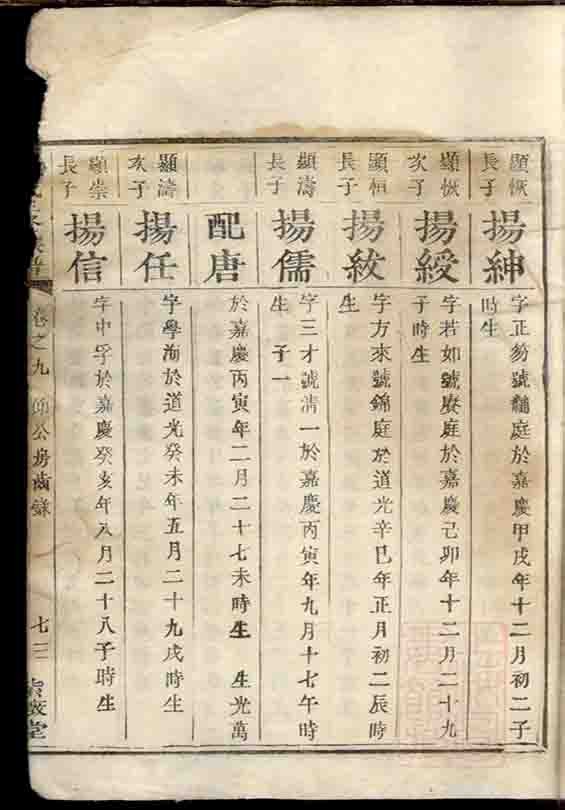 顯恢長子
揚紳
字正笏號黼庭於嘉慶甲戌年十二月初二子時生
顯恢次子
揚綬
字若如號慶庭於嘉慶己卯年十二月二十九子時生
顯桓長子
揚紋
字方來號錦庭於道光辛巳年正月初二辰時生
顯濤長子
揚儒
字三才號清一於嘉慶丙寅年九月十七午時生 子一
配唐
於嘉慶丙寅年二月二十七未時生 生光萬
顯濤次子
揚任
字學海於道光癸未年五月二十九戌時生
顯崇長子
揚信
字中孚於嘉慶癸亥年八月二十八子時生
卷之九 公房齒錄 七三 堂